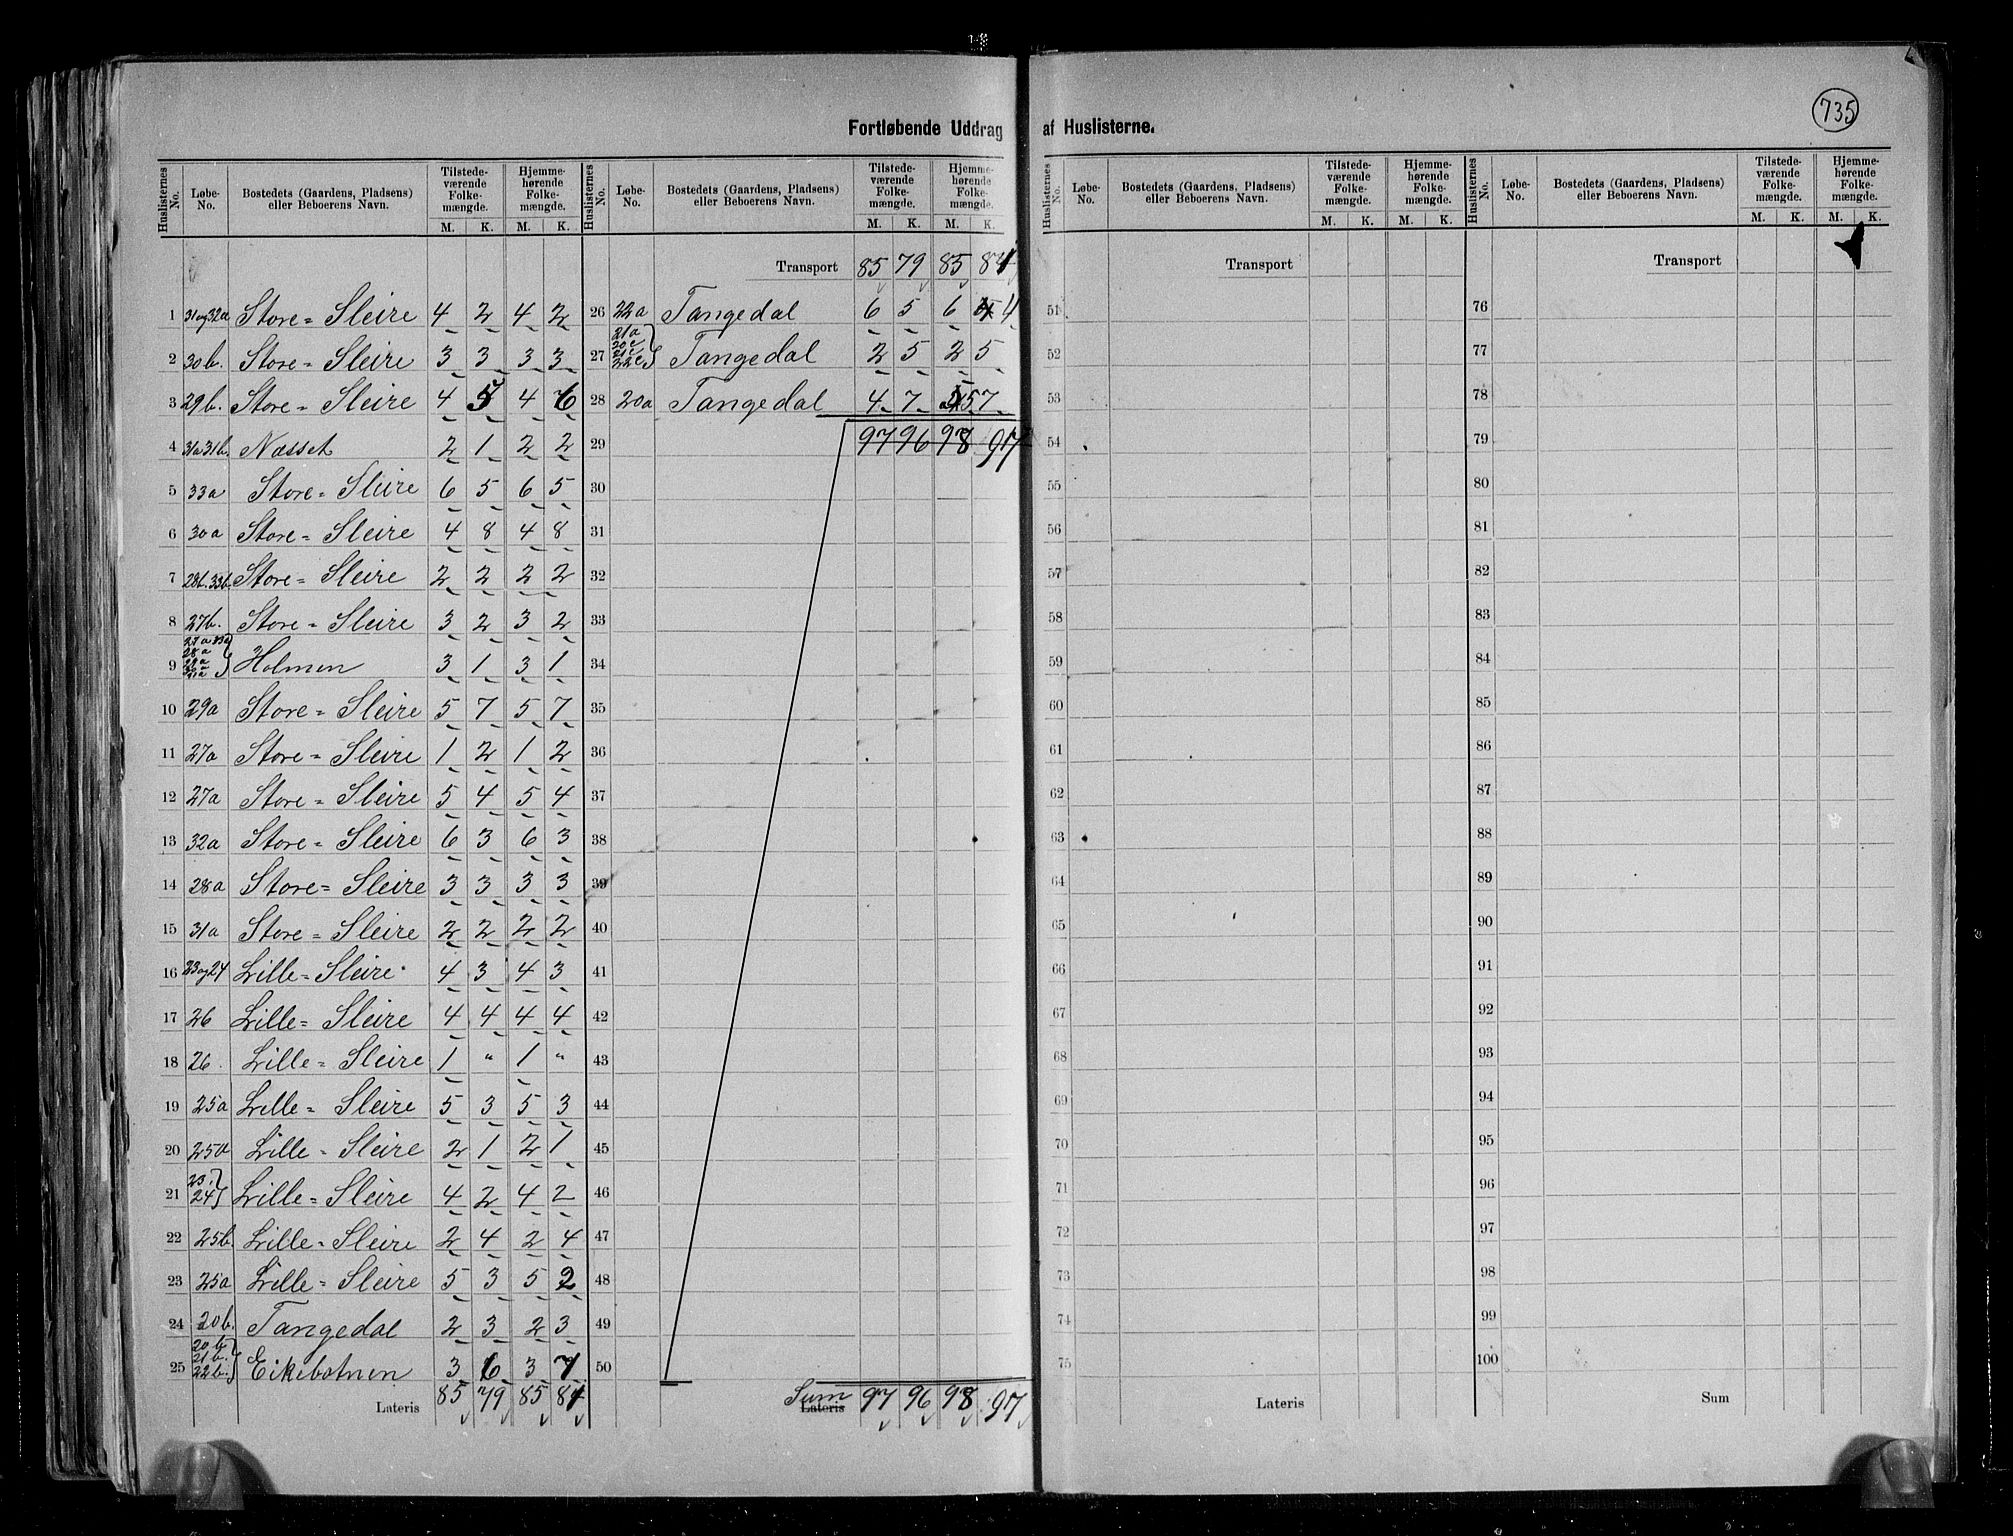 735
Fortløbende Uddrag af Huslisterne.
Huslisternes No. Løbe-No. Bostedets (Gaardens, Pladsens) eller Beboerens Navn. Tilstede-værende Folke-mængde. M. K. Hjemme-hørende Folke-mængde. M. K.
1 31og32a Store=Sleire 4 2 4 2
2 30b. Store=Sleire 3 3 3 3
3 29b. Store=Sleire 4 5 4 6
4 31a31b. Næsset 2 1 2 2
5 33a Store=Sleire 6 5 6 5
6 30a Store=Sleire 4 8 4 8
7 28b.33b. Store=Sleire 2 2 2 2
8 27b. Store=Sleire 3 2 3 2
9 28a Holmen 3 1 3 1
10 29a Store=Sleire 5 7 5 7
11 27a Store=Sleire 1 2 1 2
12 27a Store=Sleire 5 4 5 4
13 32a Store=Sleire 6 3 6 3
14 28a Store=Sleire 3 3 3 3
15 31a Store=Sleire 2 2 2 2
16 23og24 Lille=Sleire 4 3 4 3
17 26 Lille=Sleire 4 4 4 4
18 26. Lille=Sleire 1 " 1 "
19 25a Lille=Sleire 5 3 5 3
20 25a Lille=Sleire 2 1 2 1
21 23. 24 Lille=Sleire 4 2 4 2
22 25b. Lille=Sleire 2 4 2 4
23 25a Lille=Sleire 5 3 5 2
24 20b. Tangedal 2 3 2 3
25 20b 21b. 22b. Eikebotnen 3 6 3 7
Lateris 85 79 85 81
Huslisternes No. Løbe-No. Bostedets (Gaardens, Pladsens) eller Beboerens Navn. Tilstede-værende Folke-mængde. M. K. Hjemme-hørende Folke-mængde. M. K.
Transport 85 79 85 81
26 22a Tangedal 6 5 6 4
27 21a 20c 21c 22c Tangedal 2 5 2 5
28 20a Tangedal 4 7 5 7
29 97 96 98 97
30
31
32
33
34
35
36
37
38
39
40
41
42
43
44
45
46
47
48
49
50
Sum Lateris 97 96 98 97
Huslisternes No. Løbe-No. Bostedets (Gaardens, Pladsens) eller Beboerens Navn. Tilstede-værende Folke-mængde. M. K. Hjemme-hørende Folke-mængde. M. K.
Transport
51
52
53
54
55
56
57
58
59
60
61
62
63
64
65
66
67
68
69
70
71
72
73
74
75
Lateris
Huslisternes No. Løbe-No. Bostedets (Gaardens, Pladsens) eller Beboerens Navn. Tilstede-værende Folke-mængde. M. K. Hjemme-hørende Folke-mængde. M. K.
Transport
76
77
78
79
80
81
82
83
84
85
86
87
88
89
90
91
92
93
94
95
96
97
98
99
100
Sum